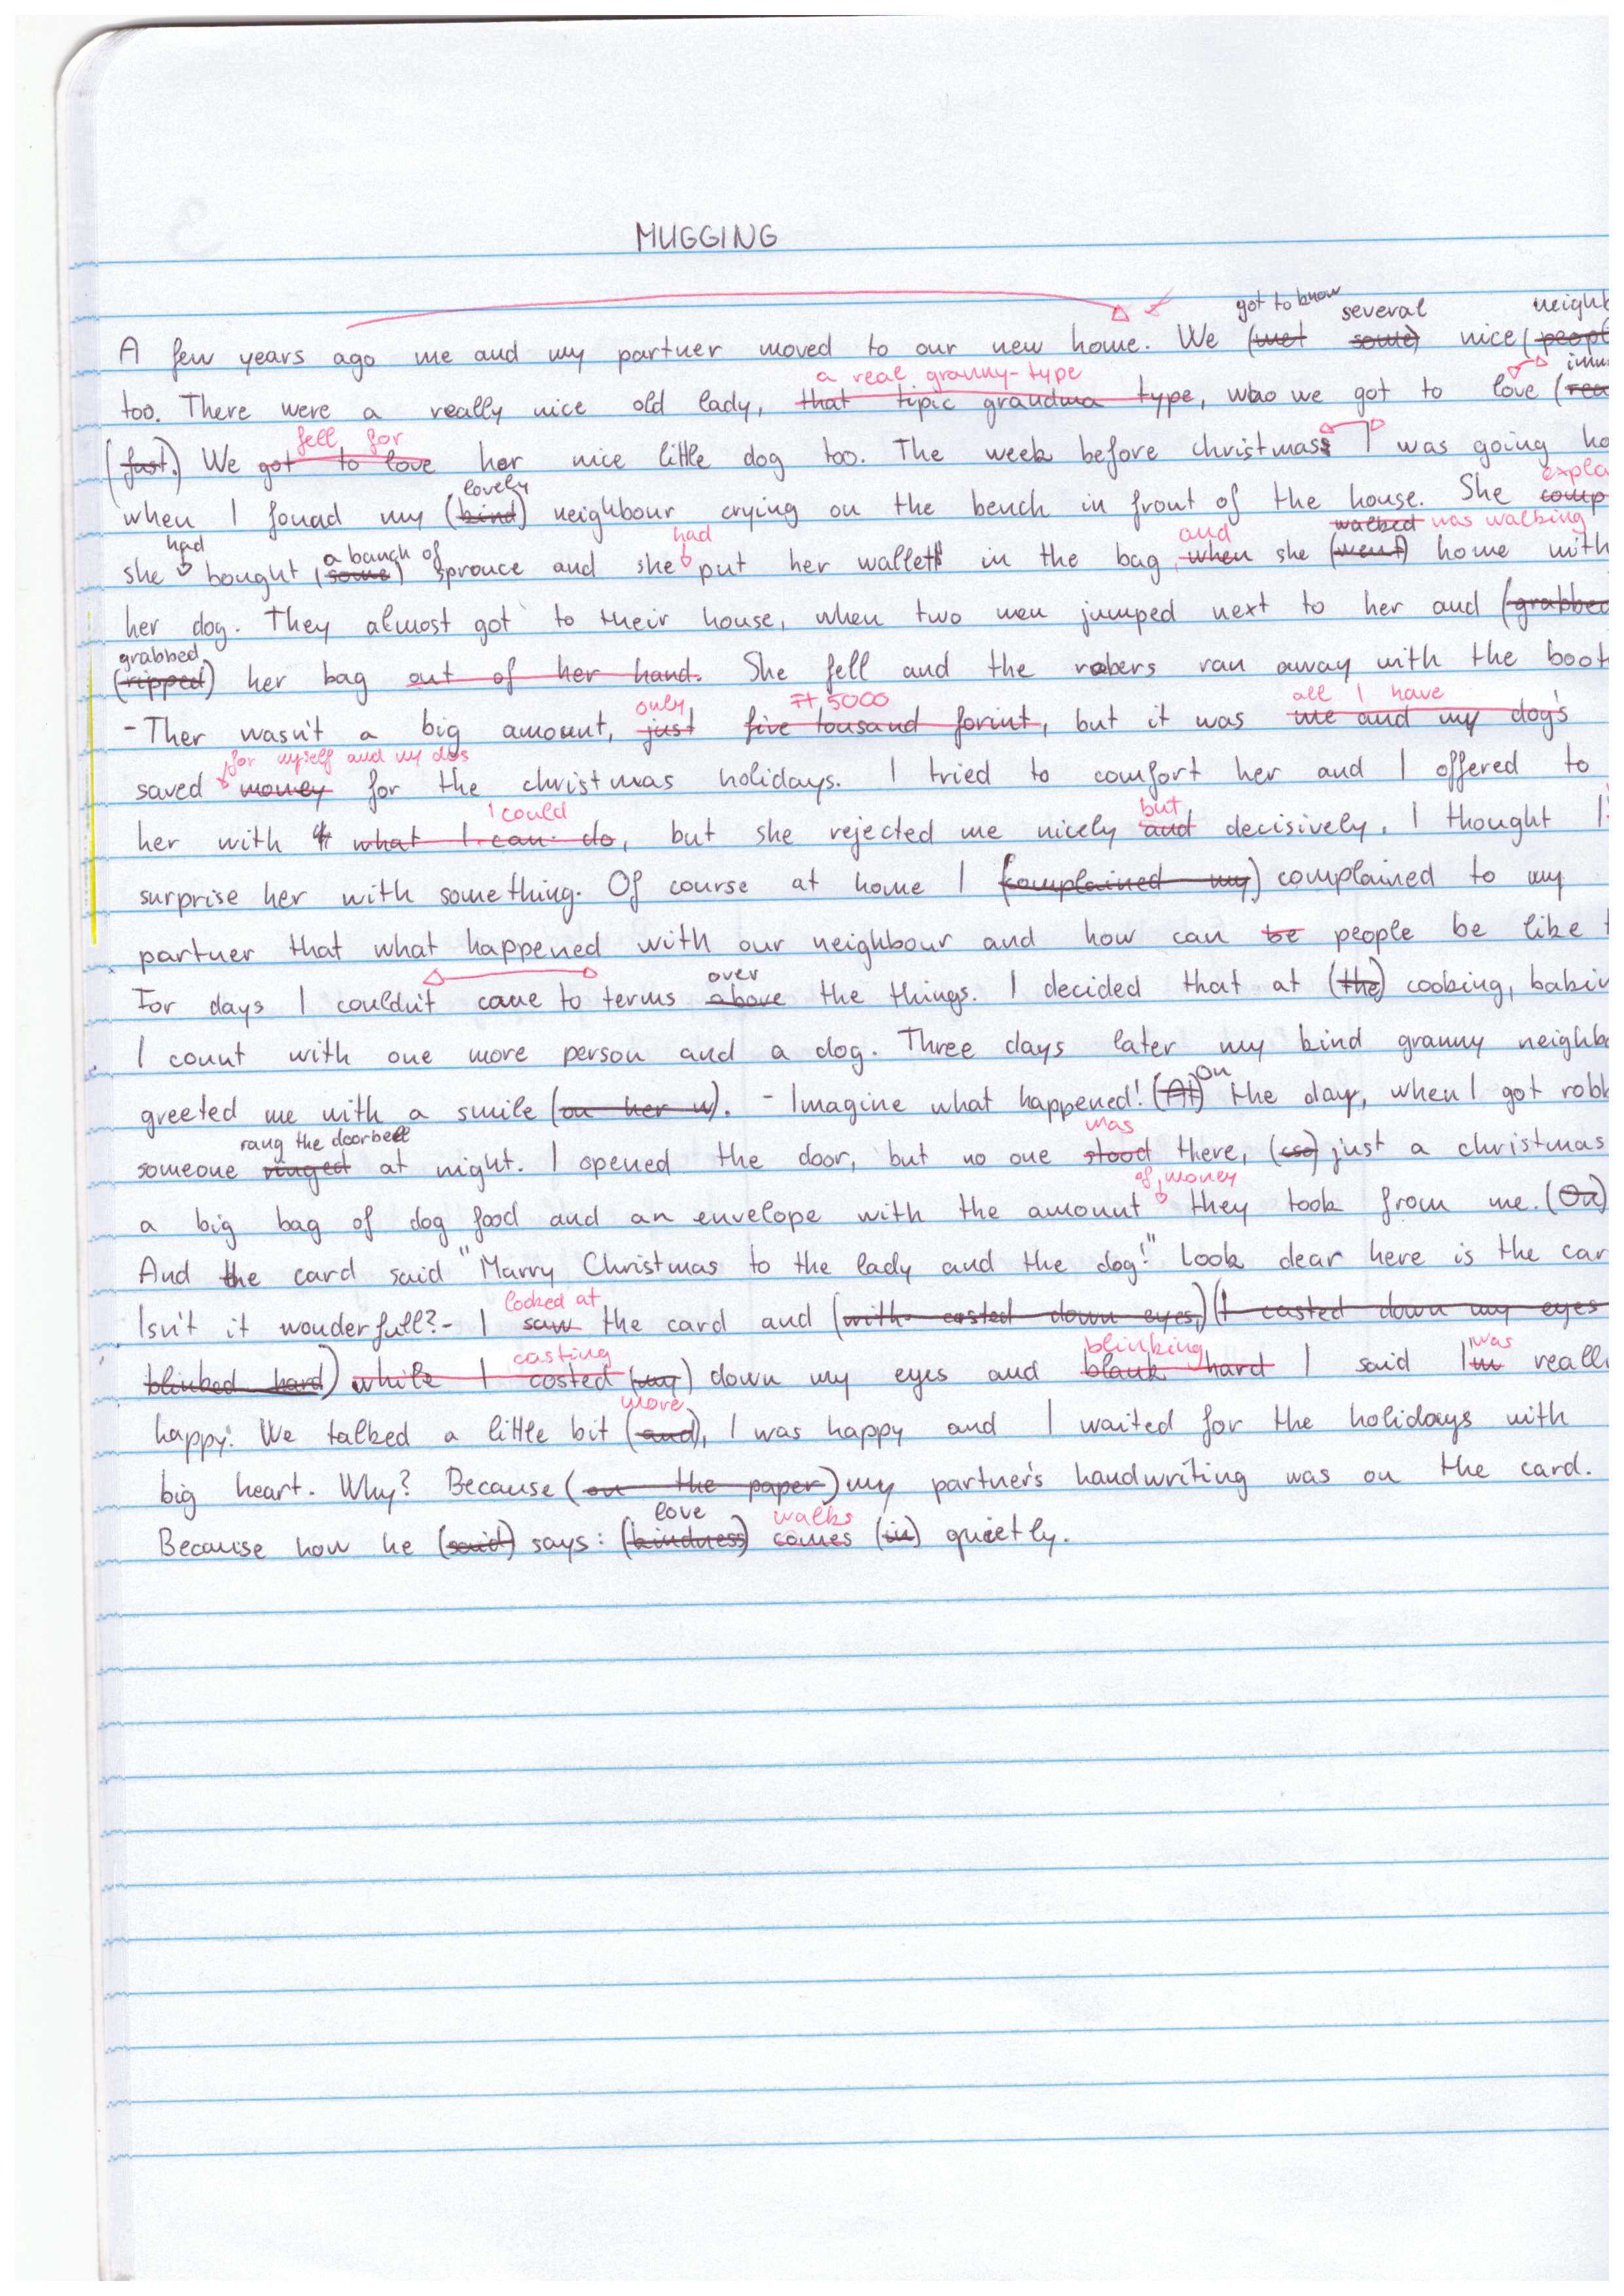 MUGGING
got to know several
A few years ago me and my partner moved to our new home. We (met some) nice
a real granny-type
too. There were a really nice old lady, that tipic grandma type, who we got to love
fell for
(fast.) We got to love her nice little dog too. The week before christmass I was going
lovely
when I found my (kind) neighbour crying on the bench in front of the house. She
had a banch of had and walked was walking
she bought (some) sprouce and she put her wallett in the bag, when she (went) home with
her dog. They almost got to their house, when two men jumped next to her and (grabbed
grabbed
(ripped) her bag out of her hand. She fell and the robers ran away with the
only Ft 5000 all I have
-Ther wasn't a big amount, just five tousand forint, but it was me and my dog's
for myself and my dos
saved money for the christmas holidays. I tried to comfort her and I offered to
I could but
her with what I can do, but she rejected me nicely and decisively. I thought
surprise her with something. Of course at home I (complained my) complained to my
partner that what happened with our neighbour and how can be people be like
over
For days I couldn't came to terms above the things. I decided that at (the) cooking,
I count with one more person and a dog. Three days later my kind granny
On
greeted me with a smile (on her w). - Imagine what happened! (At) the day, when I got
rang the doorbell was
someone ringed at night. I opened the door, but no one stood there, just a christmas
of money
a big bag of dog food and an envelope with the amount they took from me. (On)
And the card said "Marry Christmas to the lady and the dog!" Look dear here is the
looked at
Isn't it wonderfull?- I saw the card and (with casted down eyes,) (I casted down my eyes
casting blinking was
blinked hard) while I costed (my) down my eyes and blank hard I said I'm
more
happy. We talked a little bit (and), I was happy and I waited for the holidays with
big heart. Why? Because (on the paper) my partner's handwriting was on the card.
love walks
Because how he (said) says: (kindness) comes (in) quietly.